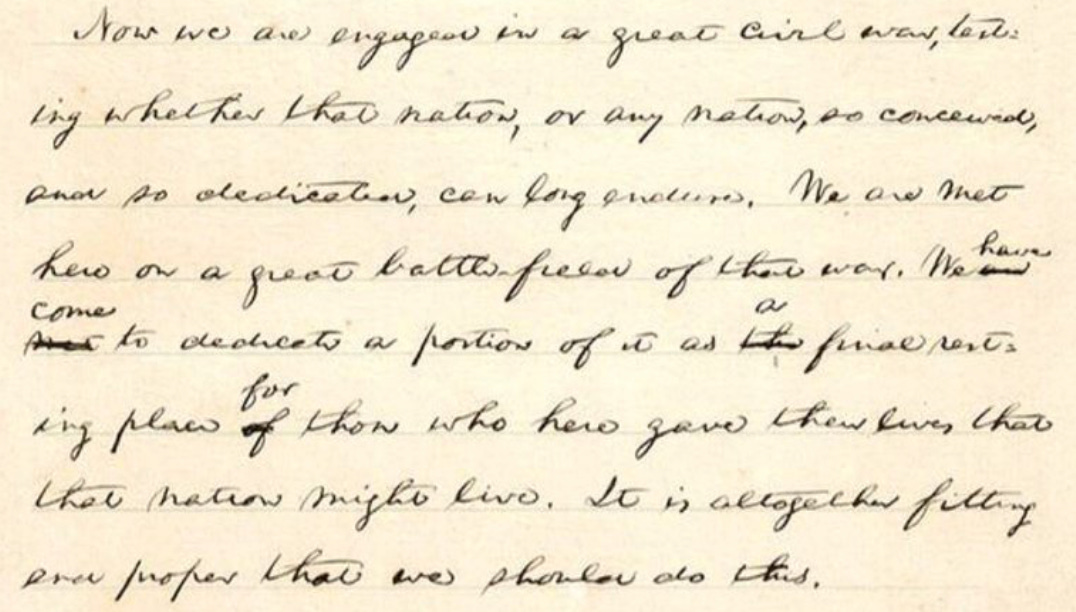 Now we are engaged in a great civil war, test=
ing whether that nation, or any nation, so conceived,
and so dedicated, can long endure. We are met
here on a great battle-field of that war. We are
have
come
met to dedicate a portion of it as the final rest=
a
for
ing place of those who here gave their lives that
that nation might live. It is altogether fitting
and proper that we should do this.